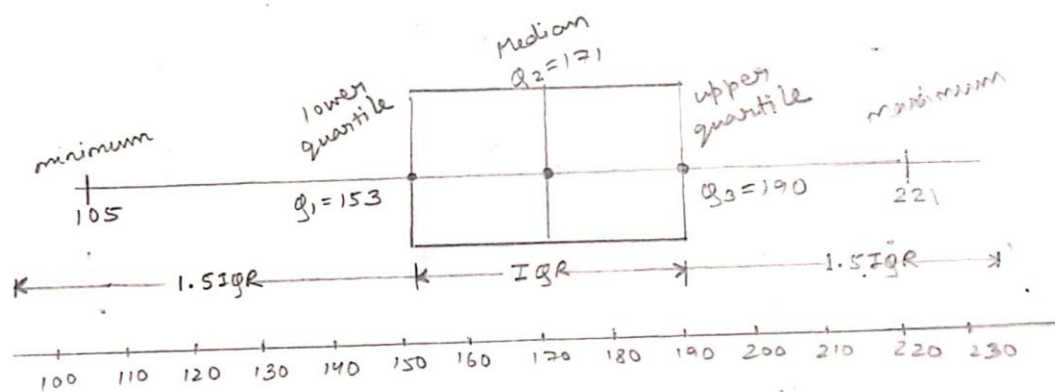 Median
Q2=171
lower
quartile
upper
quartile
minimum
maximum
105
Q1=153
Q3=190
221
1.5IQR
IQR
1.5IQR
100 110 120 130 140 150 160 170 180 190 200 210 220 230